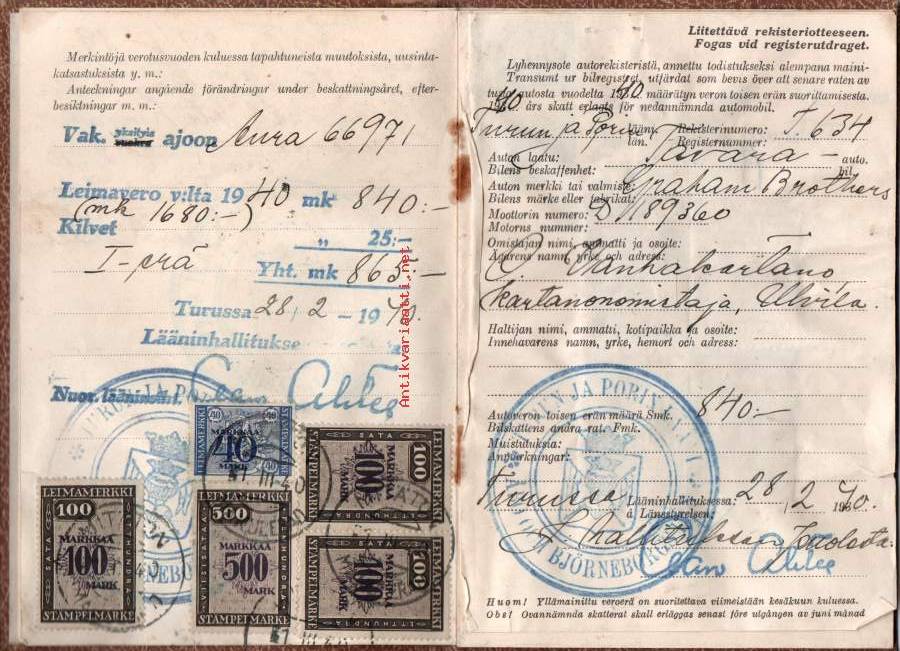 Merkintöjä verotusvuoden kuluessa tapahtuneista muutoksista, uusinta-
katsastuksista y. m.:
Anteckningar angående förändringar under beskattningsåret, efter-
besiktningar m. m.:
Vak. yksityis ajoon Aura 66971
Leimavero v:lta 1940 mk 840:-
(mk 1680:-)
Kilvet " 25:-
I-erä
Yht. mk 865:-
Turussa 28/2 - 1940.
Lääninhallitukse
Nuor. lääninsiht.
LEIMAMERKKI
40 40
MARKKAA
40
MARK
STÄMPELMÄRKE
LEIMAMERKKI
100
SATAS
MARKKAA
100
MARK
ETTHUNDRA
STÄMPELMÄRKE
LEIMAMERKKI
100
MARKKAA
100
MARK
STÄMPELMÄRKE
LEIMAMERKKI
500
MARKKAA
500
MARK
STÄMPELMÄRKE
LEIMAMERKKI
100
SATAS
MARKKAA
100
MARK
ETTHUNDRA
STÄMPELMÄRKE
Antikvariaatti.net
Liitettävä rekisteriotteeseen.
Fogas vid registerutdraget.
Lyhennysote autorekisteristä, annettu todistukseksi alempana maini-
Transumt ur bilregistret, utfärdat som bevis över att senare raten av
tusta autosta vuodelta 1940 määrätyn veron toisen erän suorittamisesta.
1940 års skatt erlagts för nedannämnda automobil.
Turun ja Porin lään. Rekisterinumero: T. 634
län. Registernummer:
Auton laatu: Tavara- auto.
Bilens beskaffenhet: bil.
Auton merkki tai valmiste: Graham Brothers
Bilens märke eller fabrikat:
Moottorin numero: D 189360
Motorns nummer:
Omistajan nimi, ammatti ja osoite:
Ägarens namn, yrke och adress:
O. Vanhakartano,
kartanonomistaja, Ulvila.
Haltijan nimi, ammatti, kotipaikka ja osoite:
Innehavarens namn, yrke, hemort och adress:
Autoveron toisen erän määrä Smk. 840:-
Bilskattens andra rat. Fmk.
Muistutuksia:
Anmärkningar:
Turussa Lääninhallituksessa: 28/2 1940.
å Länestyrelsen:
BJÖRNEBORGS
Huom! Yllämainittu veroerä on suoritettava viimeistään kesäkuun kuluessa.
Obs! Ovannämnda skatterat skall erläggas senast före utgången av juni månad